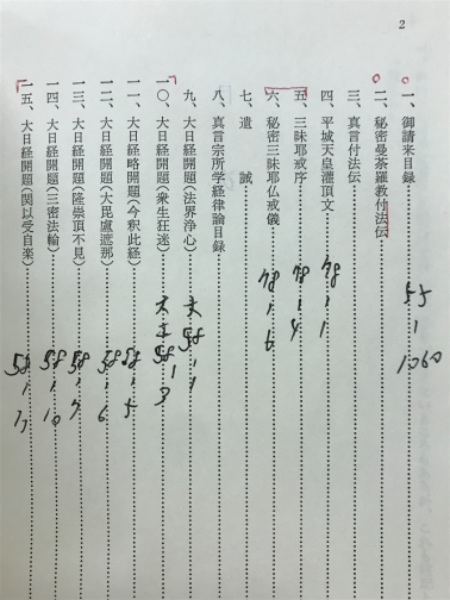 2
一、御請来目録 55 1 1060
二、秘密曼荼羅教付法伝
三、真言付法伝
四、平城天皇灌頂文 78 1 1
五、三昧耶戒序 78 1 4
六、秘密三昧耶仏戒儀 78 1 6
七、遺誡
八、真言宗所学経律論目録
九、大日経開題(法界浄心) 大 58 1 1
一〇、大日経開題(衆生狂迷) 大正 58 1 3
一一、大日経略開題(今釈此経) 58 1 5
一二、大日経開題(大毘盧遮那) 58 1 6
一三、大日経開題(隆崇頂不見) 58 1 7
一四、大日経開題(三密法輪) 58 1 10
一五、大日経開題(関以受自楽) 58 1